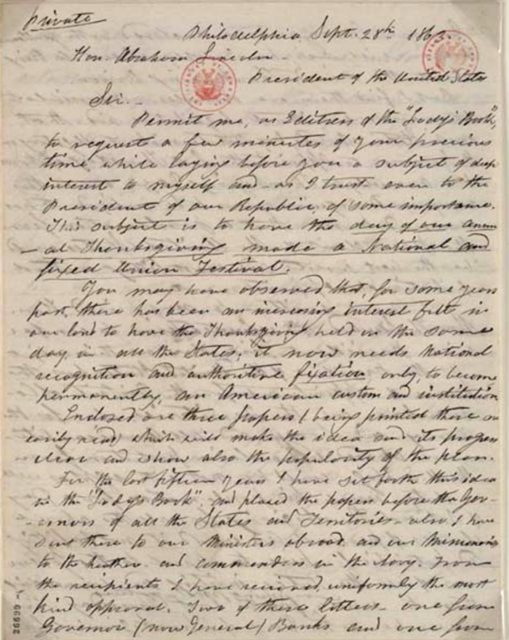 Private
Philadelphia Sept. 28th 1863.
Hon. Abraham Lincoln -
President of the United States
Sir. -
Permit me, as Editress of the "Lady's Book",
to request a few minutes of your precious
time, while laying before you a subject of deep
interest to myself and - as I trust - even to the
President of our Republic, of some importance.
This subject is to have the day of our annu-
al Thanksgiving made a National and
fixed Union Festival.
You may have observed that, for some years
past, there has been an increasing interest felt in
our land to have the Thanksgiving held on the same
day, in all the States; it now needs National
recognition and authoritive fixation, only, to become
permanently, an American custom and institution.
Enclosed are three papers (being printed these are
easily read) which will make the idea and its progress
clear and show also the popularity of the plan.
For the last fifteen years I have set forth this idea
in the "Lady's Book", and placed the papers before the Gov-
ernors of all the States and Territories - also I have
sent these to our Ministers abroad, and our Missionaries
to the heathen - and commanders in the Navy. From
the recipients I have received, uniformly the most
kind approval. Two of these letters, one from
Governor (now General) Banks and one from
26699